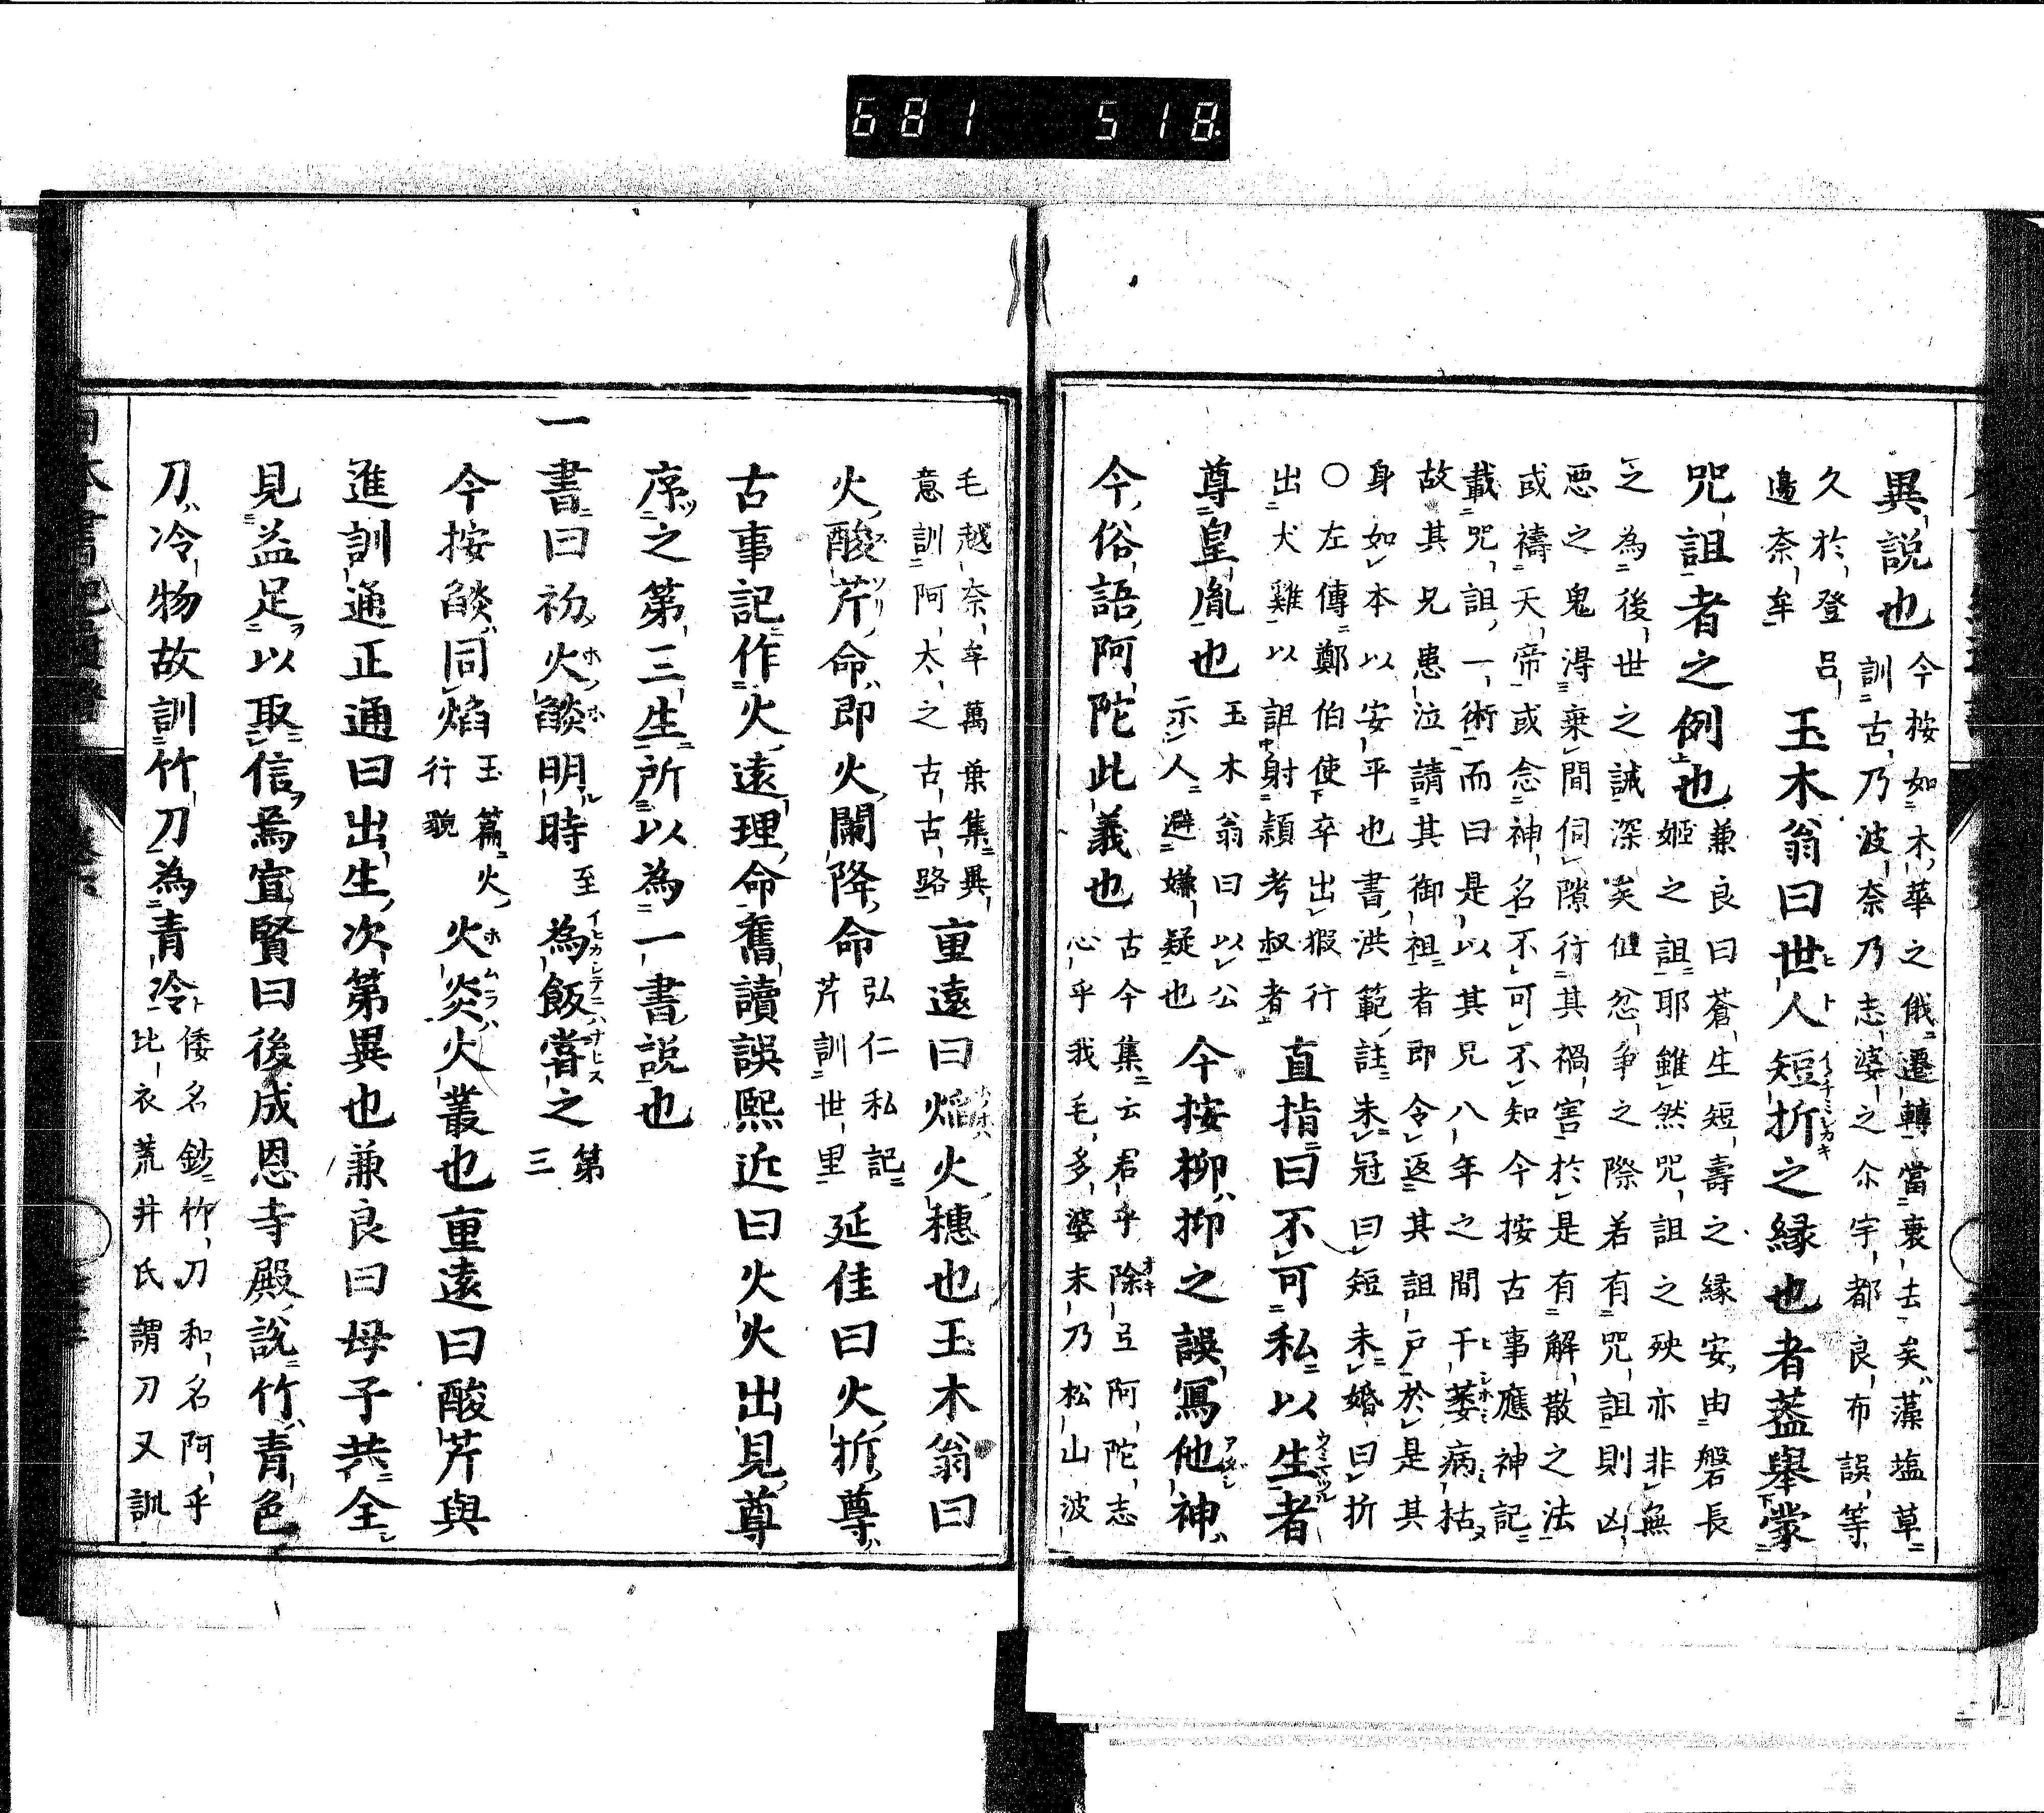 681 518
異説也 今按如木華之俄遷轉當衰去矣藻塩草
訓古乃波奈乃志婆之尒宇都良布誤等
久於登呂
邉奈牟 玉木翁曰世人短折之縁也者蓋舉蒙
咒詛者之例也 兼良曰蒼生短壽之縁安由磐長
姫之詛耶雖然咒詛之殃亦非無
之為後世之誡深矣但忿爭之際若有咒詛則凶
悪之鬼淂乗間伺隙行其禍害於是有解散之法
或禱天帝或念神名不可不知今按古事應神記
載咒詛一術而曰是以其兄八年之間干萎病枯
故其兄患泣請其御祖者即令返其詛戸於是其
身如本以安平也書洪範註未冠曰短未婚曰折
○左傳鄭伯使卒出猳行
出犬雞以詛射頴考叔者 直指曰不可私以生者
尊皇胤也 玉木翁曰以公
示人避嫌疑也 今按柳抑之誤寫他神
今俗語阿陀此義也 古今集云君乎除弖阿陀志
心乎我毛多婆末乃松山波
毛越奈牟萬葉集異
意訓阿太之古古路 重遠曰焔火穗也玉木翁曰
火酸芹命即火闌降命 弘仁私記
芹訓世里 延佳曰火折尊
古事記作火遠理命舊讀誤熈近曰火火出見尊
序之第三生所以為一書説也
一書曰初火燄明時 至 為飯甞之 第
三
今按燄同焰 玉篇火
行貌 火炎火叢也重遠曰酸芹與
進訓通正通曰出生次第異也兼良曰母子共全
見益足以取信焉宣賢曰後成恩寺殿説竹青色
刀冷物故訓竹刀為青冷 倭名鈔竹刀和名阿乎
比衣荒井氏謂刀又訓